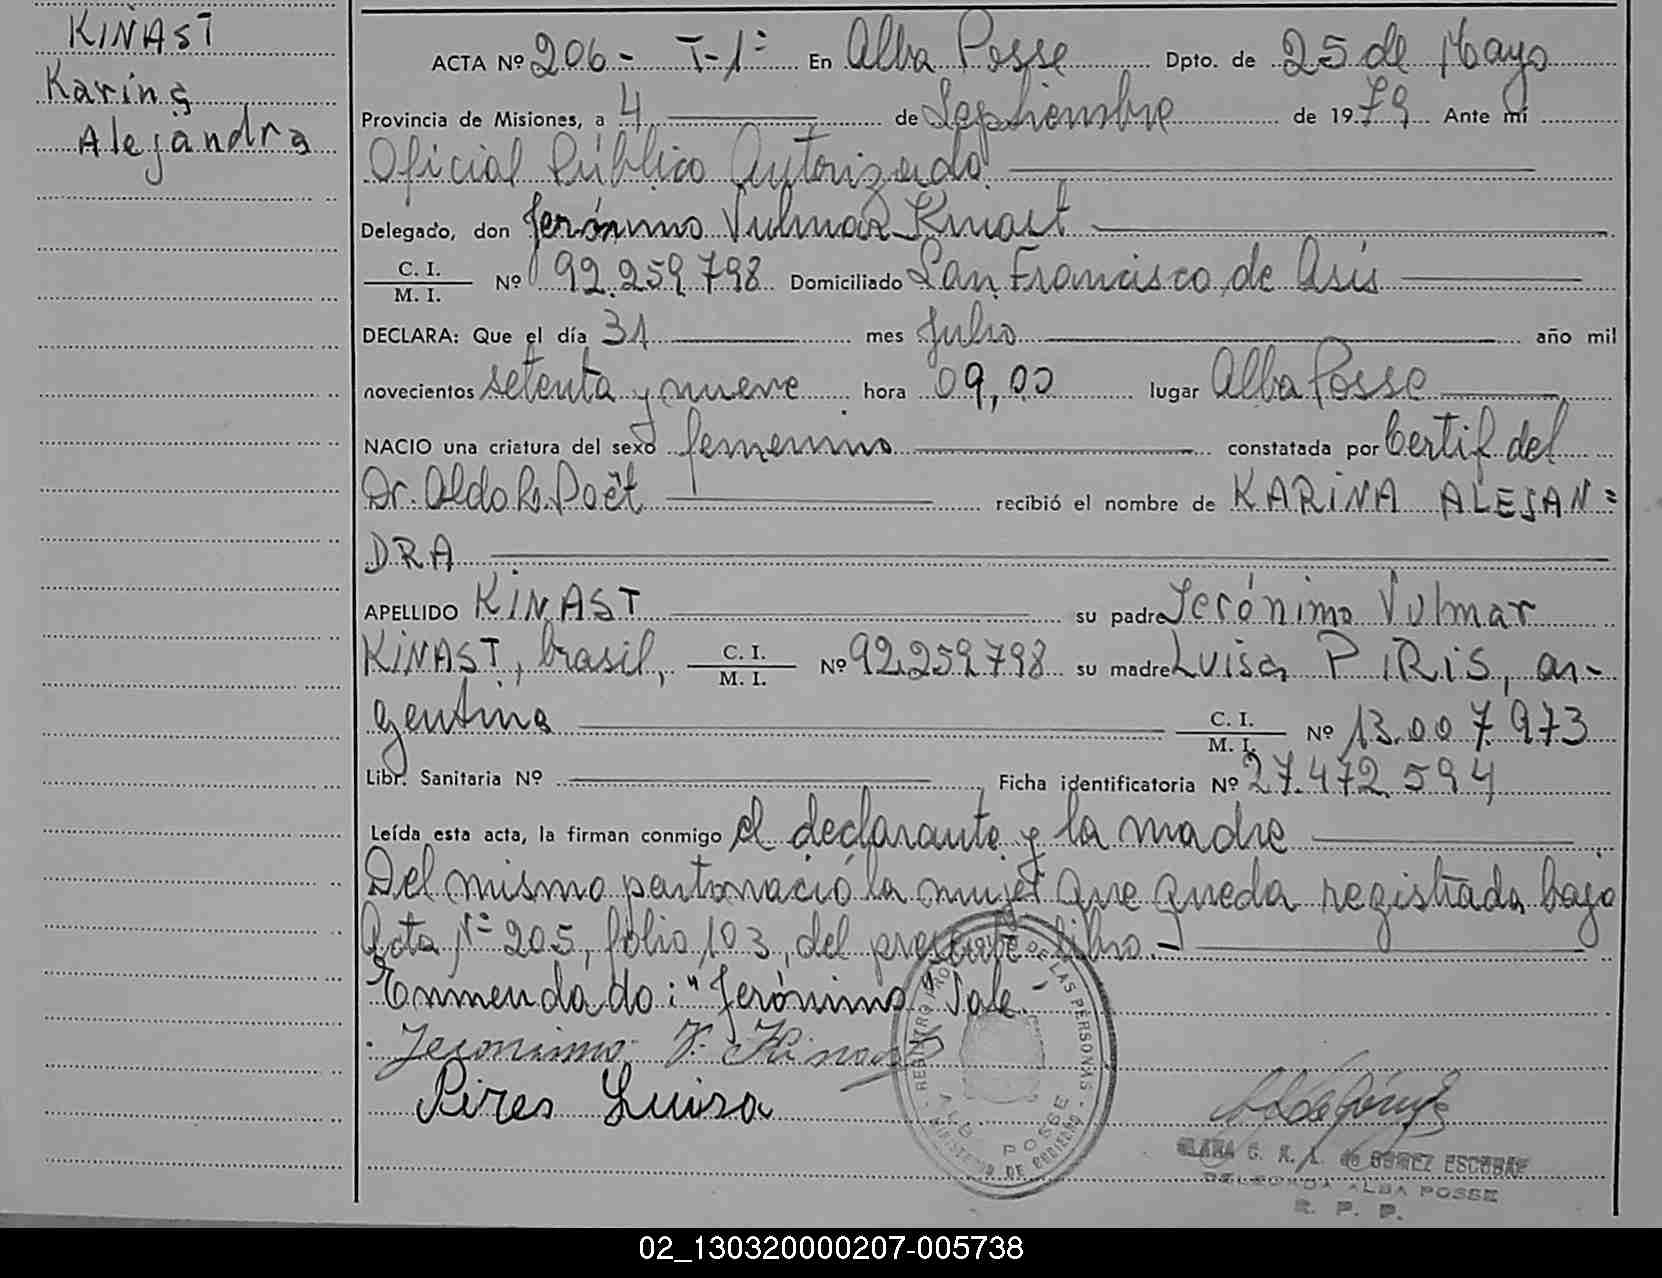 KINAST
Karina
Alejandra
ACTA Nº 206- T-1º En Alba Posse Dpto. de 25 de Mayo
Provincia de Misiones, a 4 de Septiembre de 1979 Ante mí
Oficial Público Autorizado
Delegado, don Jerónimo Vulmar Kinast
C. I. / M. I. Nº 92.259.798 Domiciliado San Francisco de Asís
DECLARA: Que el día 31 mes Julio año mil
novecientos setenta y nueve hora 09,00 lugar Alba Posse
NACIO una criatura del sexo femenino constatada por Certif. del
Dr. Aldo R. Poët recibió el nombre de KARINA ALEJAN=
DRA
APELLIDO KINAST su padre Jerónimo Vulmar
KINAST, brasil, C. I. / M. I. Nº 92.259.798 su madre Luisa PIRIS, ar-
gentina C. I. / M. I. Nº 13.007.973
Libr. Sanitaria Nº Ficha identificatoria Nº 27.472.594
Leída esta acta, la firman conmigo el declarante y la madre
Del mismo parto nació la mujer que queda registrada bajo
Acta Nº 205, folio 103, del presente libro.-
Enmendado: "Jerónimo" Vale-
Jeronimo V. Kinast
Pires Luisa
REGISTRO PROV. DE LAS PERSONAS
ALBA POSSE
MINISTERIO DE GOBIERNO
DE GOMEZ ESCOBAR
DELEGADA ALBA POSSE
R. P. P.
02_130320000207-005738